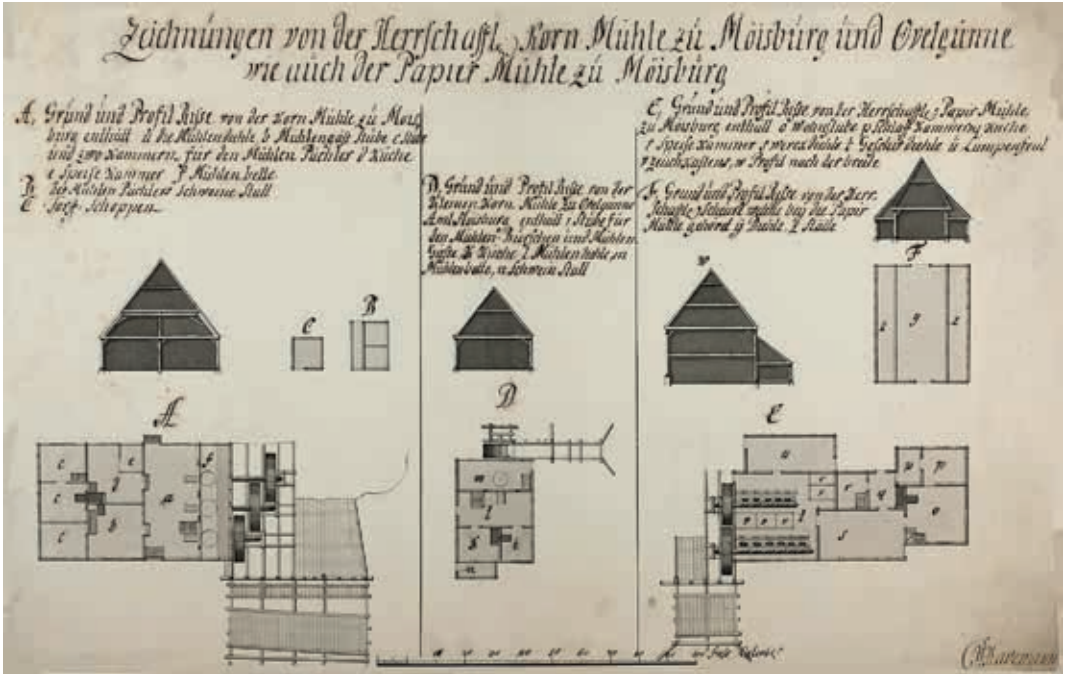 Zeichnungen von der Herrschaftl. Korn Mühle zu Möisburg und Ovelgünne
wie auch der Papier Mühle zu Möisburg
A, Grund und Profil Risse von der Korn Mühle zu Mois
burg enthält a die Mühlendehle b Mühlengast Stube c Stube
und zwo Kammern, für den Mühlen Pächter d Küche
e Speise Kammer f Mühlen bette
B des Mühlen Pächters Schweine Stall
C Torf-Schoppen
D, Grund und Profil Risse von der
kleinen Korn Mühle zu Ovelgünne
Amt Moisburg, enthält i Stube für
den Mühlen Burschen und Mühlen
Gäste, k Küche l Mühlendehle, m
Mühlenbette, n Schwein Stall
E, Grund und Profil Risse von der Herrschaftl. Papier Mühle
zu Moisburg enthält o Wohnstube p Schlaf Kammer q Küche
r Speise Kammer s dehle t Geschir dehle u Lumpen
v kastens, w Profil nach der breite
F, Grund und Profil Risse von der Herr
Schaftl. Scheure welche bey die Papier
Mühle gehöret y Diehle, z Ställe
F
w
C
B
z y z
A
D
E
c e f
c d a
c b
m
l
k i
n
u
p p
r
r r q
t o
v v v
s